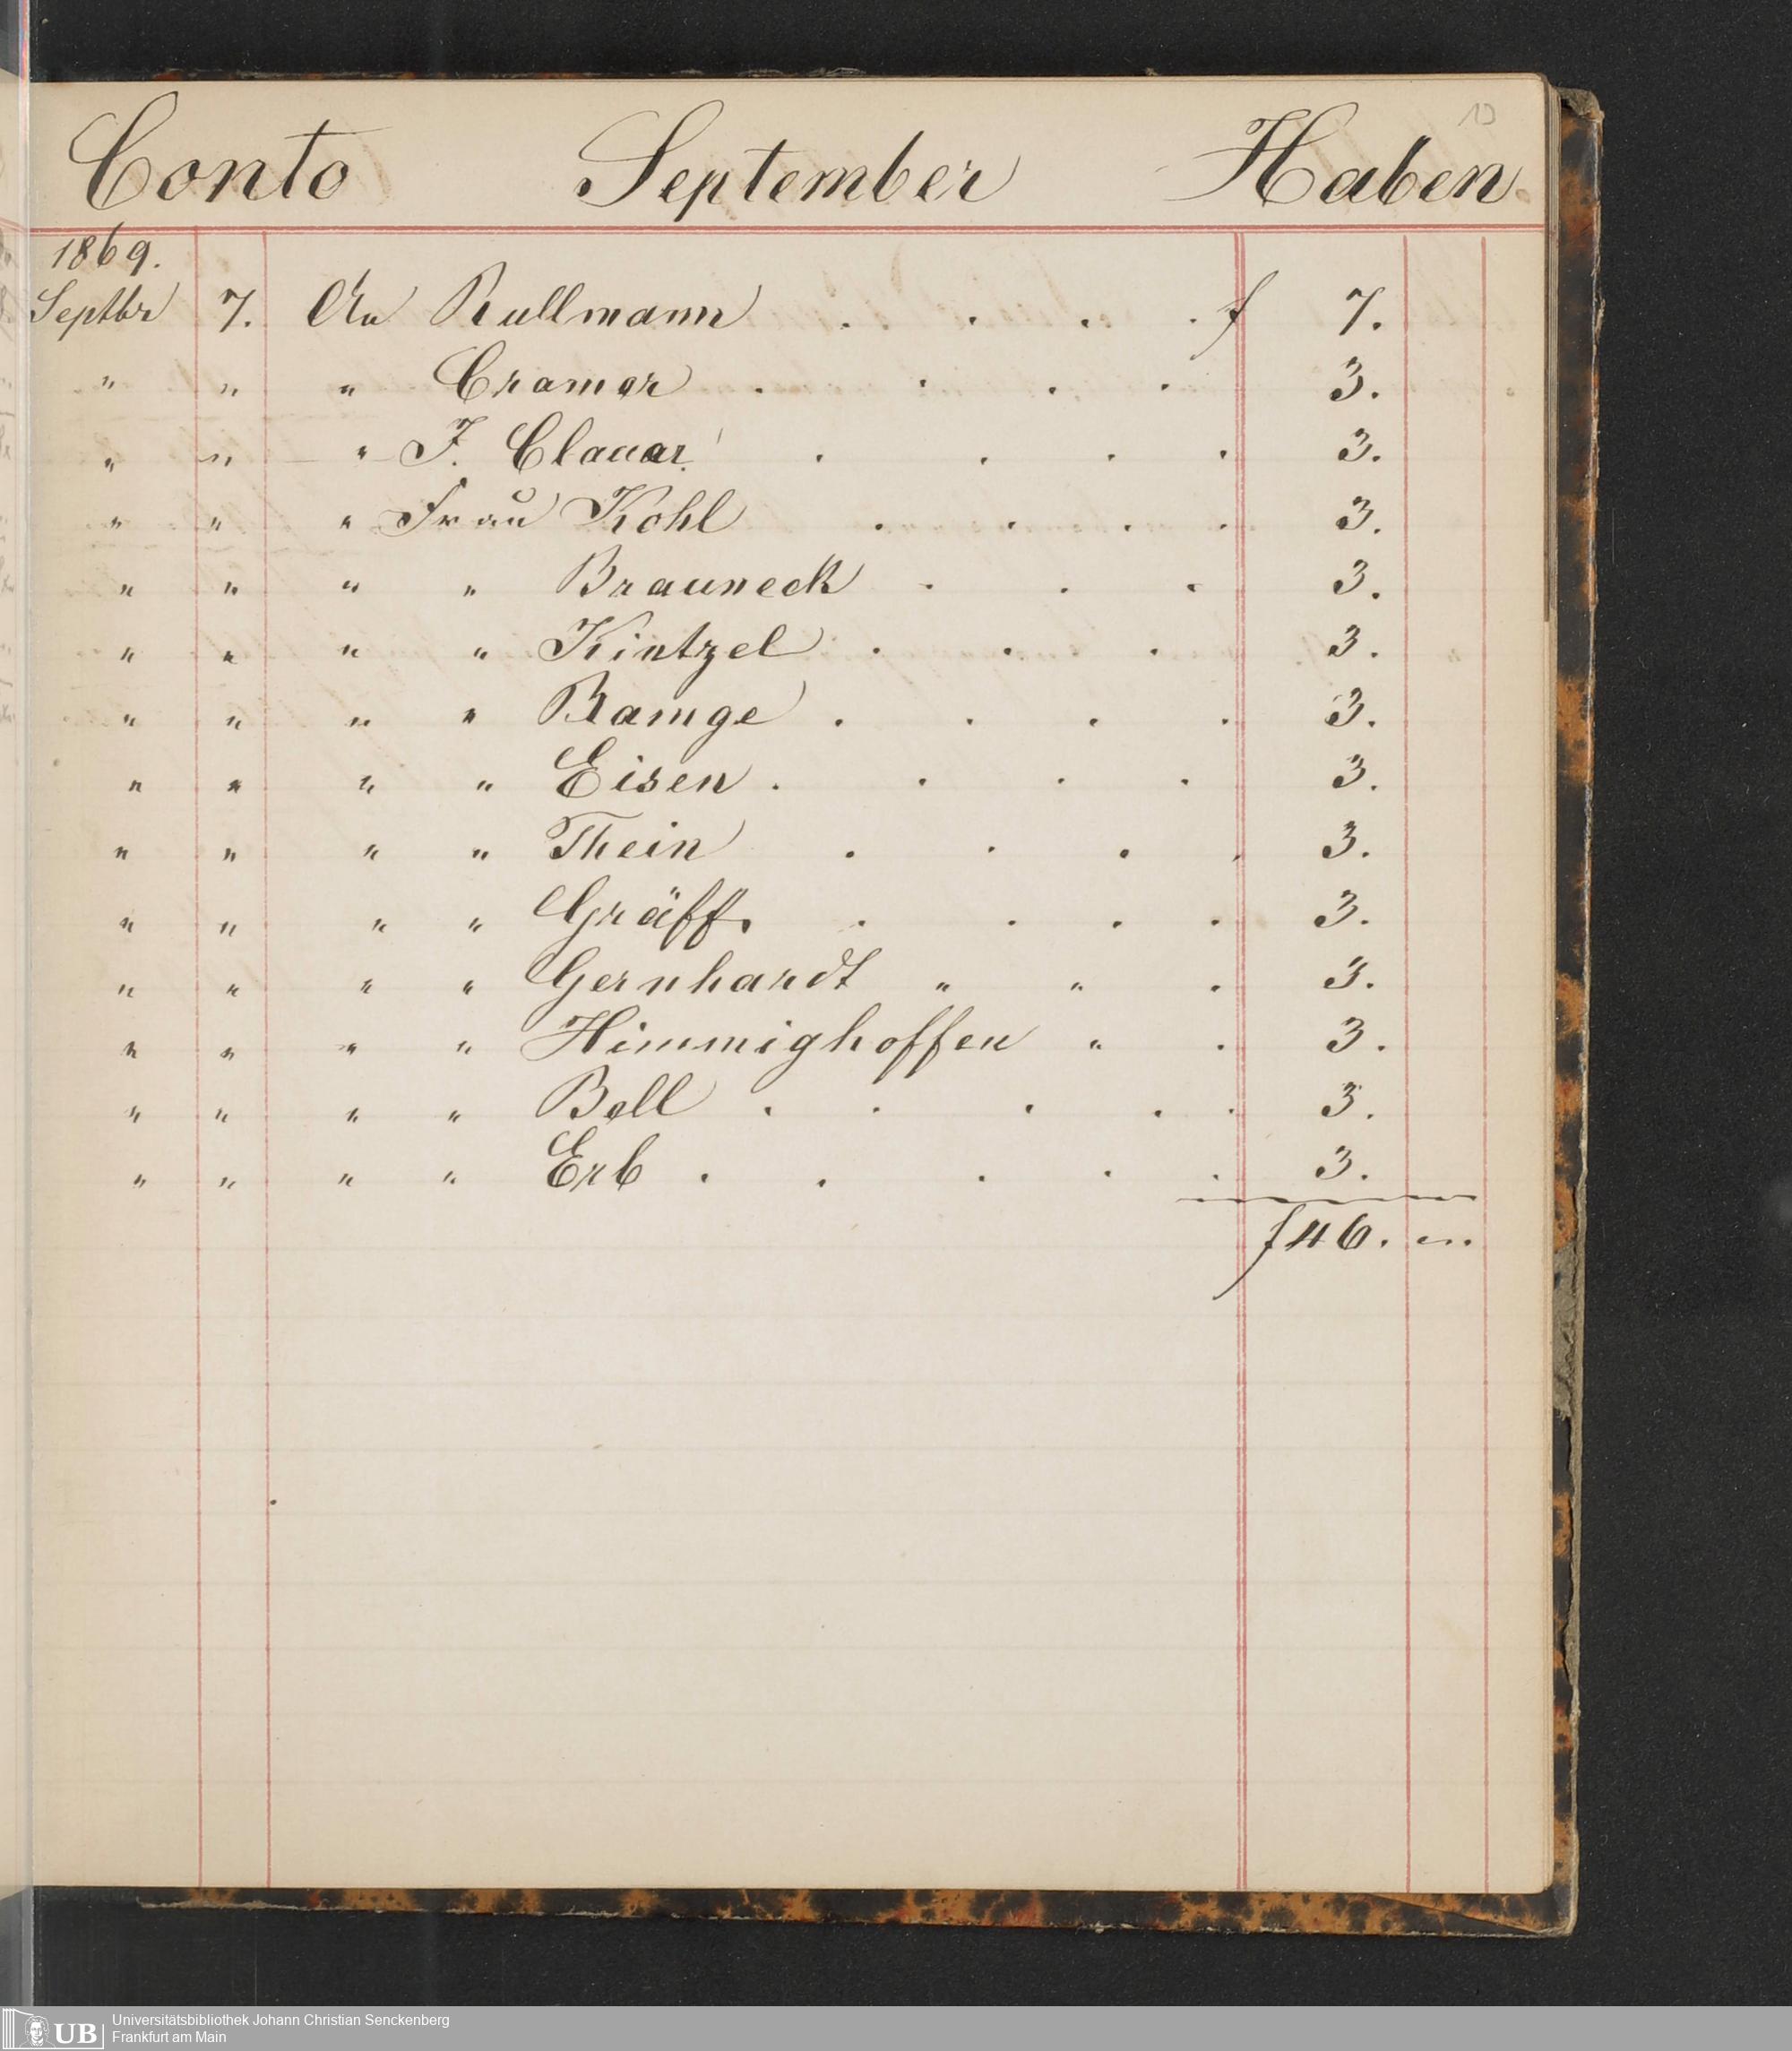 10
Conto September Haben.
1869.
Septbr 7. An Rullmann . . . . f 7.
" " " Cramer . . . . 3.
" " " J. Clauer . . . . 3.
" " " Frau Kohl . . . . 3.
" " " " Brauneck . . . 3.
" " " " Kintzel . . . 3.
" " " " Ramge . . . . 3.
" " " " Eisen . . . . 3.
" " " " Thein . . . . 3.
" " " " Gräff. . . . . 3.
" " " " Gernhardt " " . 3.
" " " " Himmighoffen " . 3.
" " " " Bell . . . . . 3.
" " " " Erb . . . . . 3.
f 46. "
UB
Universitätsbibliothek Johann Christian Senckenberg
Frankfurt am Main